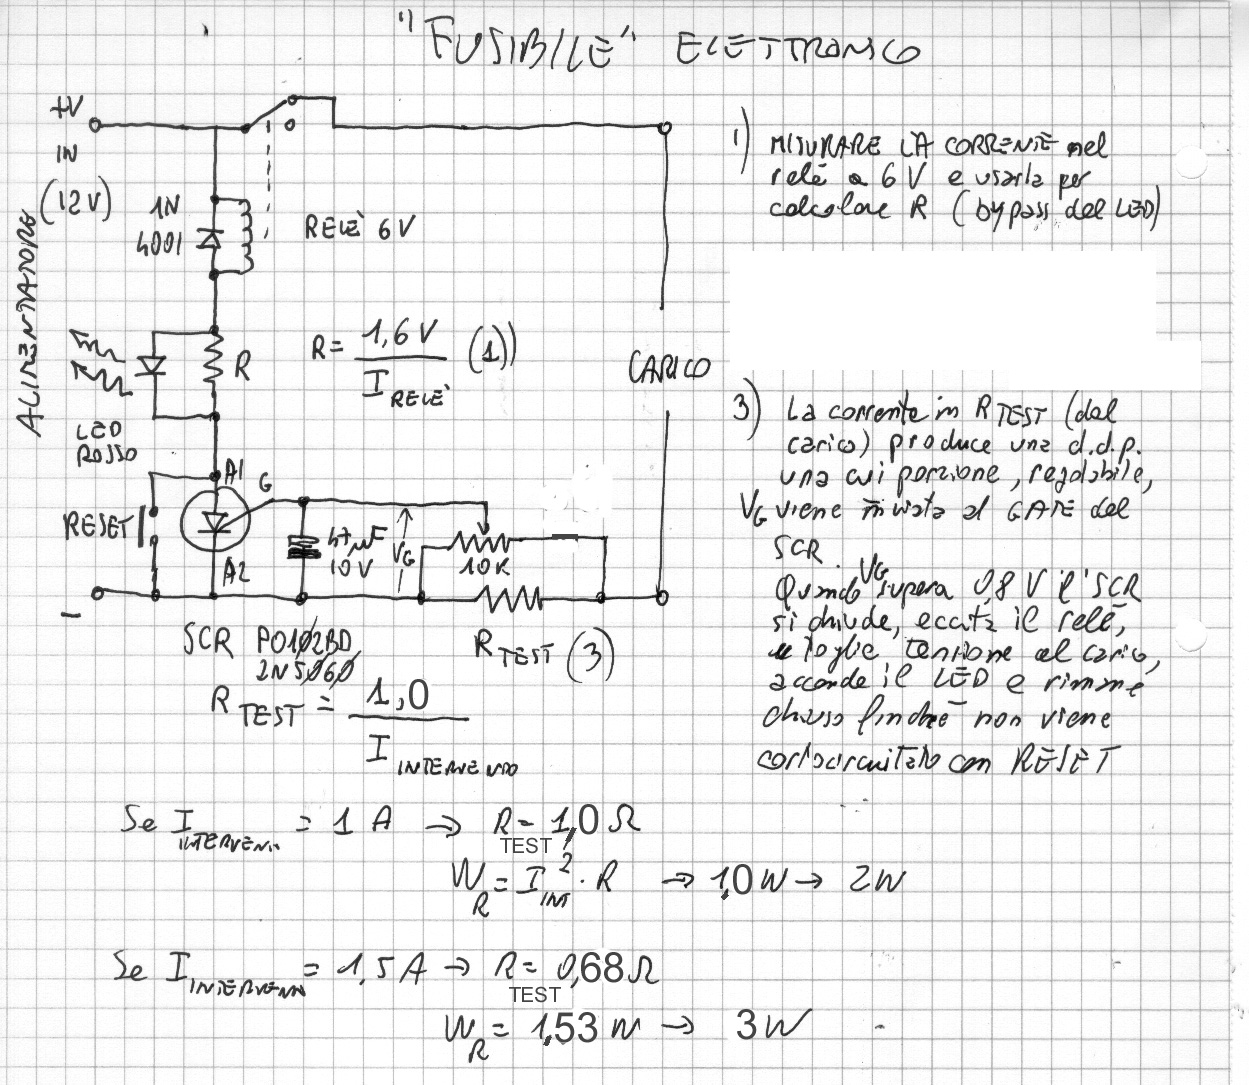 "FUSIBILE" ELETTRONICO
+V
IN
(12V)
ALIMENTATORE
1N
4001
RELÈ 6V
R= 1,6 V (1))
I RELÈ
R
LED
ROSSO
A1
G
RESET
A2
47µF
10V
VG
10K
CARICO
SCR P0102BD
2N5060
R TEST (3)
R TEST = 1,0
I INTERVENTO
1) MISURARE LA CORRENTE nel
relé a 6 V e usarla per
calcolare R (bypass del LED)
3) La corrente in R TEST (dal
carico) produce una d.d.p.
una cui porzione, regolabile,
VG viene inviata al GATE del
SCR.
Quando VG supera 0,8 V l'SCR
si chiude, eccita il relé,
toglie tensione al carico,
accende il LED e rimane
chiuso finché non viene
cortocircuitato con RESET
Se I INTERVENTO = 1 A → R TEST = 1,0 Ω
WR = I INT² · R → 1,0 W → 2W
Se I INTERVENTO = 1,5 A → R TEST = 0,68 Ω
WR = 1,53 W → 3W